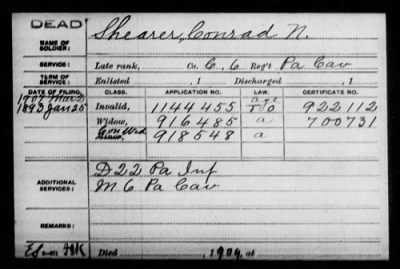 DEAD
NAME OF SOLDIER: Shearer, Conrad N.
SERVICE: Late rank, Co. C, 6 Reg't Pa Cav
TERM OF SERVICE: Enlisted , 1 Discharged , 1
DATE OF FILING. CLASS. APPLICATION NO. LAW. CERTIFICATE NO.
1907 Mar 2 age
1893 Jan 25 Invalid, 1144455 922112
Widow, 916485 a 700731
Con Wid 918548 a
ADDITIONAL SERVICES: D 22 Pa Inf
M 6 Pa Cav
REMARKS:
Died , 1909, at